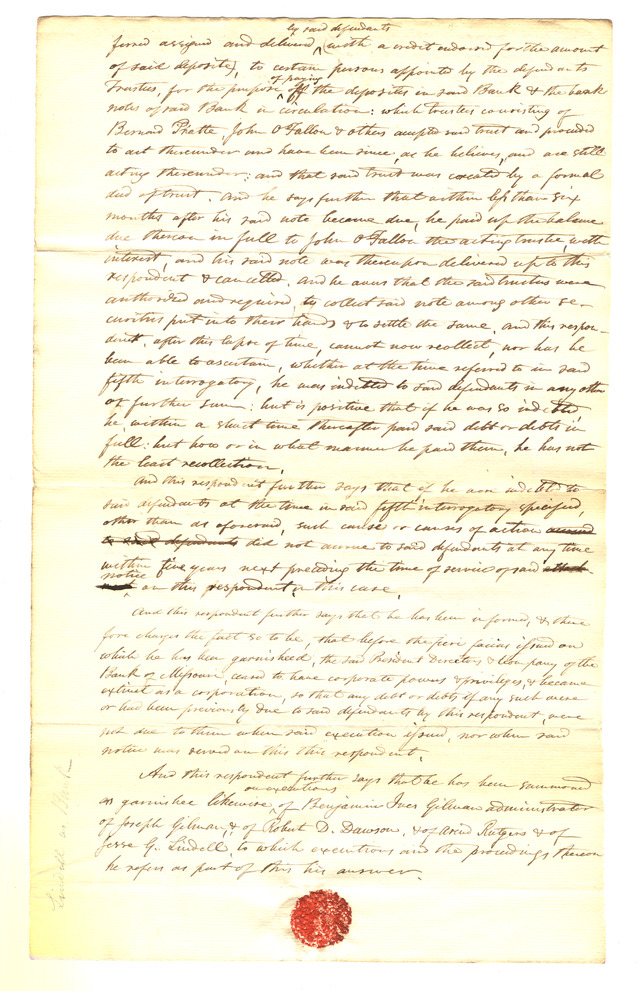 by said defendants
ferred assigned and delivered (with a credit endorsed for the amount
of said deposite), to certain persons appointed by the defendants
Trustees, for the purpose of paying off the deposites in said Bank & the bank
notes of said Bank in circulation: which trustees consisting of
Bernard Pratte, John O'Fallon & others accepted said trust and proceeded
to act thereunder and have been since, as he believes, and are still
acting thereunder: and that said trust was created by a formal
deed of trust. And he says further that within less than six
months after his said note became due, he paid up the balance
due thereon in full to John O'Fallon the acting trustee, with
interest, and his said note was thereupon delivered up to this
respondent & cancelled. And he avers that the said trustees were
authorized and required, to collect said note among other se-
curities put into their hands & to settle the same. And this respon-
dent, after this lapse of time, cannot now recollect, nor has he
been able to ascertain, whether at the time referred to in said
fifth interrogatory, he was indebted to said defendants in any other
or further sum: but is positive that if he was so indebted,
he, within a short time thereafter paid said debt or debts in
full: but how or in what manner he paid them, he has not
the least recollection.
And this respondent further says that if he was indebted to
said defendants at the time in said fifth interrogatory specified,
other than as aforesaid, such cause or causes of action accrued
to said defendants did not accrue to said defendants at any time
within five years next preceding the time of service of said
notice on this respondent in this case.
And this respondent further says that he has been informed, & there
fore charges the fact so to be, that before the fieri facias issued on
which he has been garnisheed, the said President Directors & Company of the
Bank of Missouri, ceased to have corporate powers & privileges, & became
extinct as a corporation, so that any debt or debts if any such were
or had been previously due to said defendants by this respondent, were
not due to them when said execution issued, nor when said
notice was served on this this respondent.
And this respondent further says that he has been summoned
on executions
as garnishee likewise, of Benjamin Ives Gilman administrator
of Joseph Gilman, & of Robert D. Dawson, & of Arend Rutgers & of
Jesse G. Lindell, to which executions and the proceedings thereon
he refers as part of this his answer.
Lindell as Bank